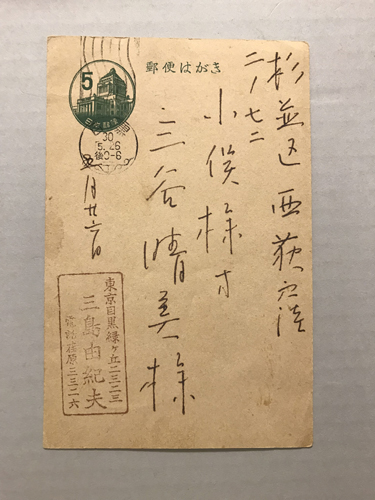 郵便はがき
5
日本郵便
30
5.26
後0-6
杉並区西荻窪
二ノ七二
小俣様方
三谷晴美様
五月廿六日
東京目黒緑ヶ丘二三二三
三島由紀夫
電話荏原三三二六